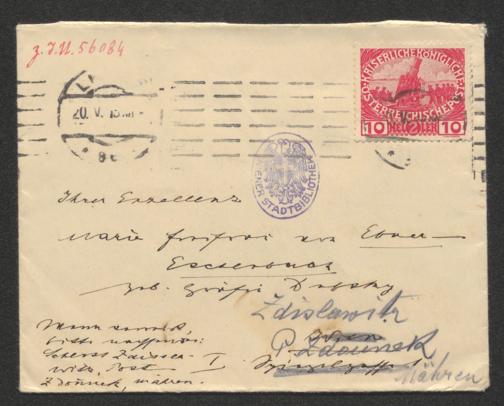 z. J.N. 56084
20. V. 15
KAISERLICHE KÖNIGLICHE
ÖSTERREICHISCHE POST
10 HELLER 10
WIENER STADTBIBLIOTHEK
Ihrer Exzellenz
Marie Freifrau von Ebner
Eschenbach
geb. Gräfin Dubsky
Zdislawitz
P. Zdounek
Mähren
Wenn verreist,
bitte nachsenden:
Schloss Zdissla-
witz, Post
Zdounek, Mähren.
Wien
I
Spiegelgasse 1